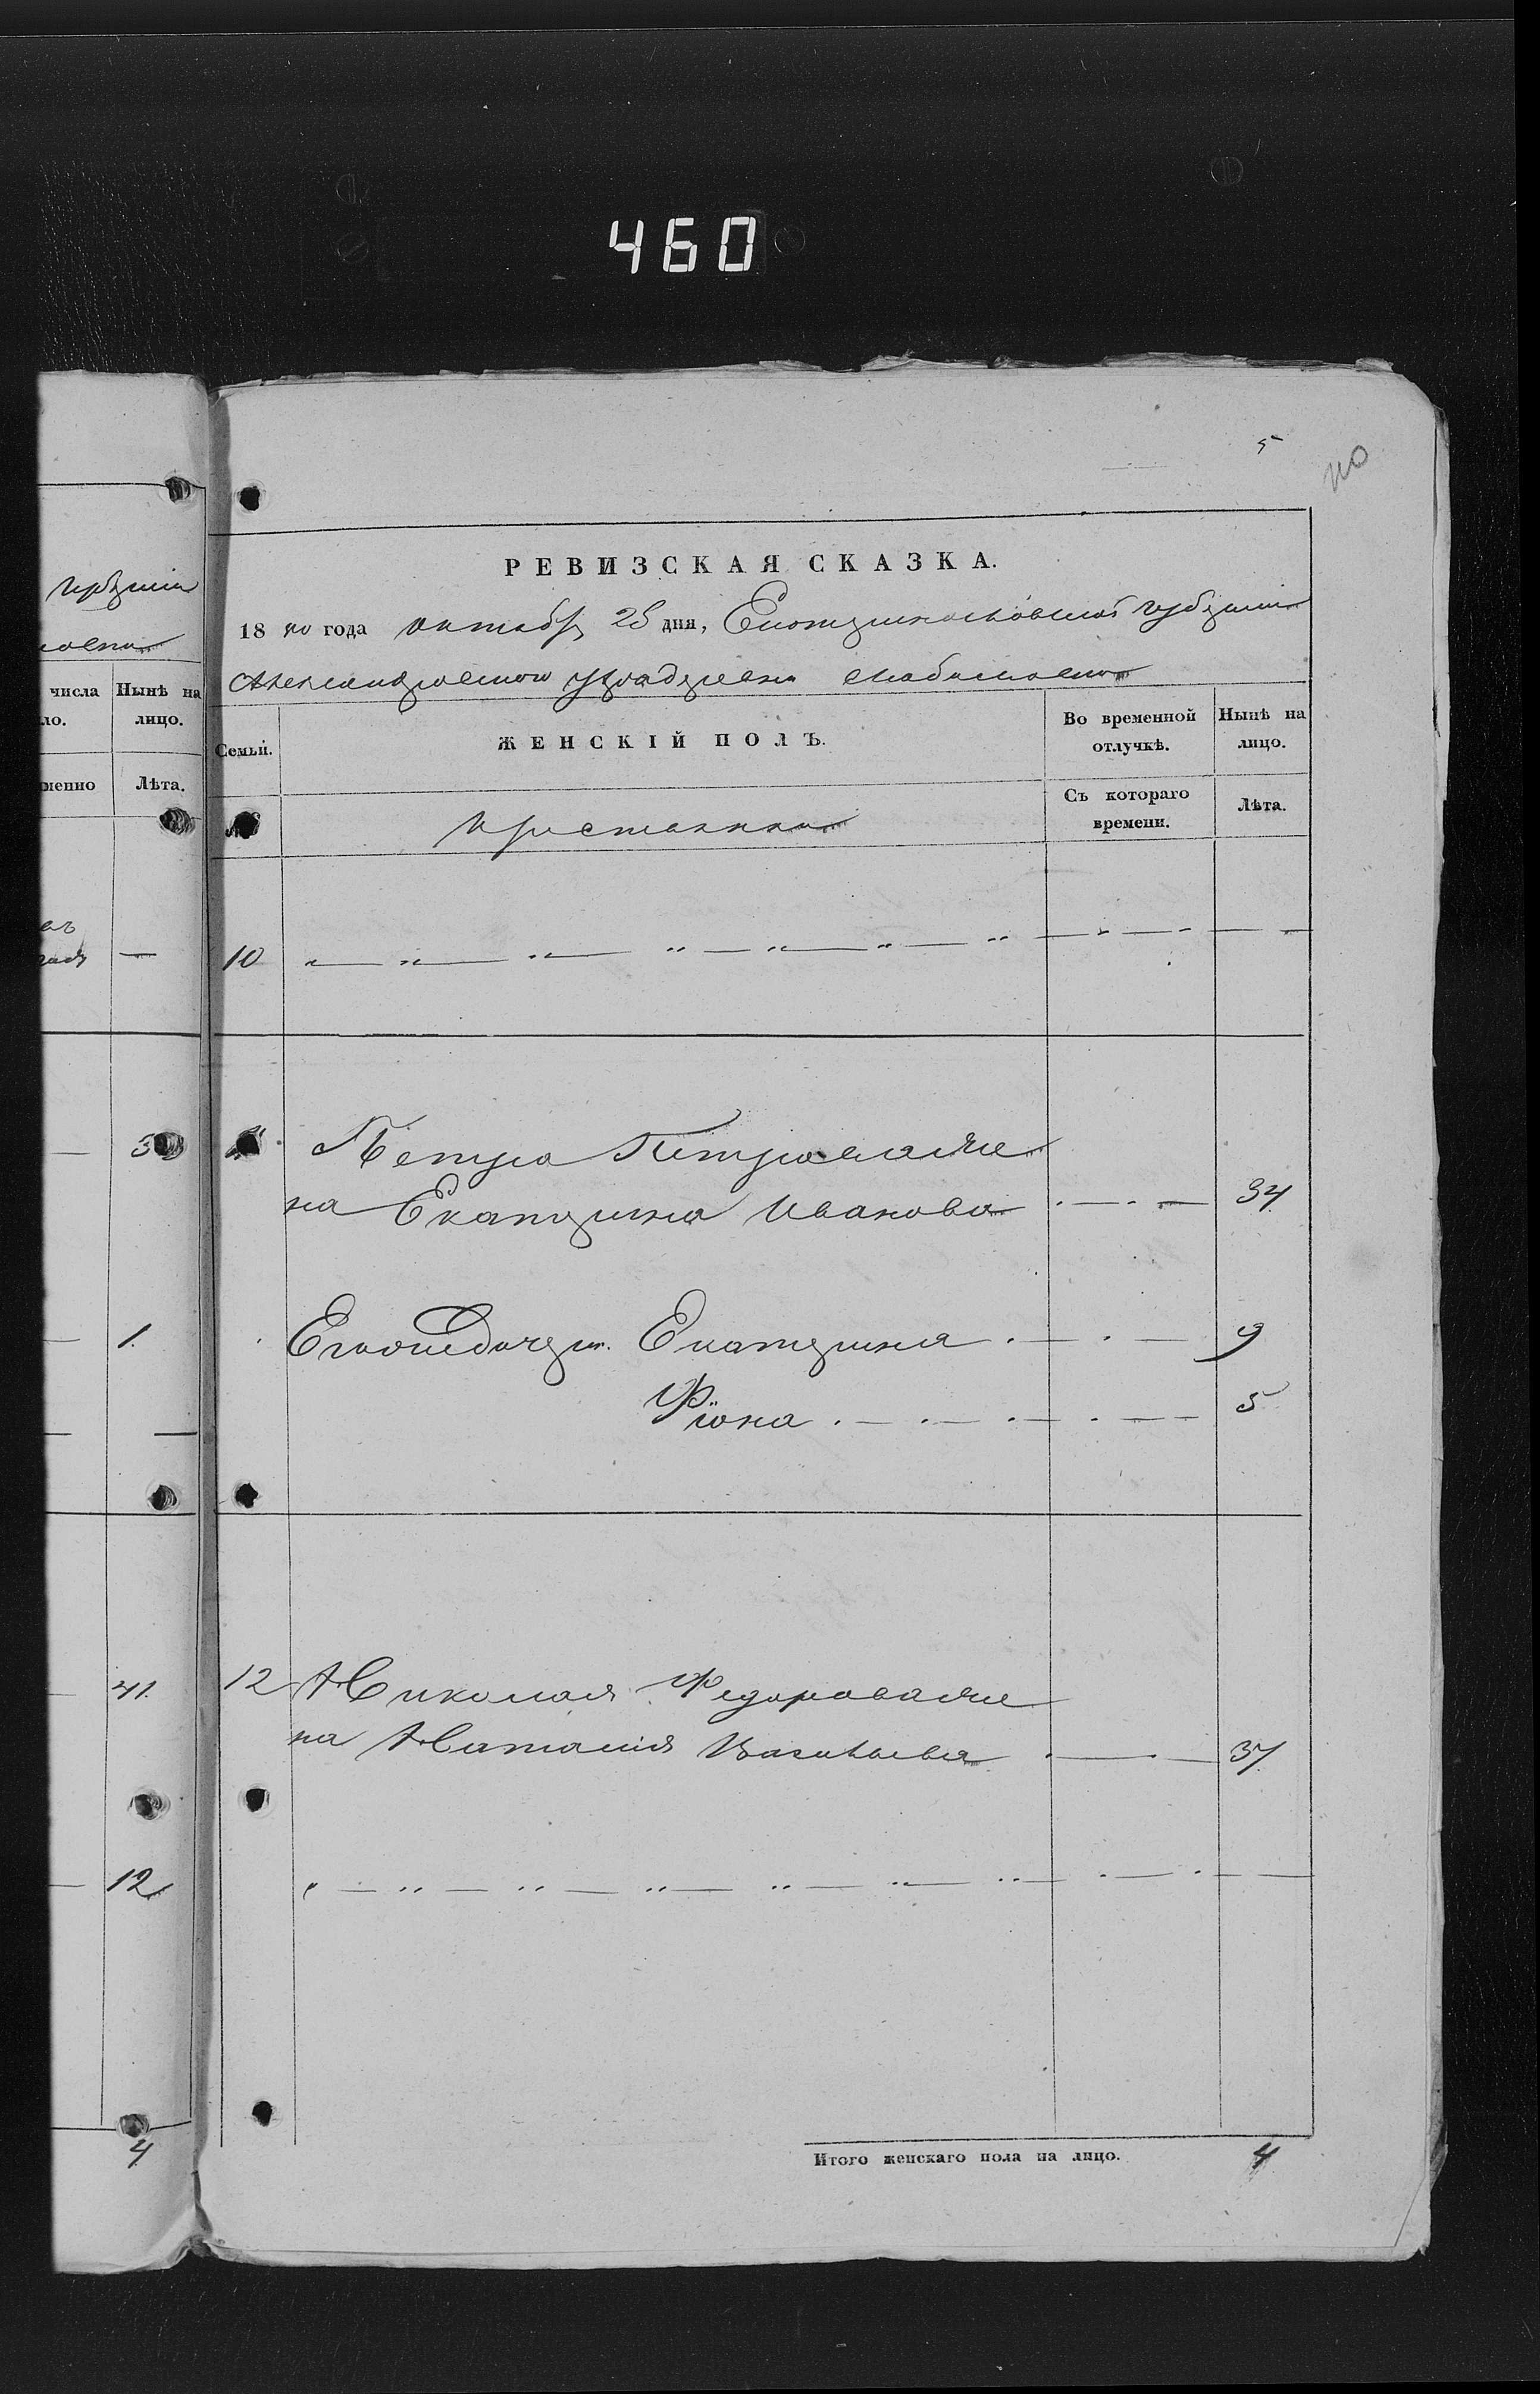 460
5
110
РЕВИЗСКАЯ СКАЗКА.
18 50 года октября 25 дня, Екатеринославской губерніи
Александровскаго уезда деревни
Семьи.
ЖЕНСКІЙ ПОЛЪ.
Во временной отлучкѣ.
Нынѣ на лицо.
Съ котораго времени.
Лѣта.
крестьянки
10
Петра Петрова же
на Екатерина Иванова 34
Его дочери Екатерина 9
Фiона 5
12 Николая Федорова же
на Наталия Васильева 37
Итого женскаго пола на лицо. 4
губерніи
числа
ло.
Нынѣ на лицо.
менно
Лѣта.
1.
41.
12
4